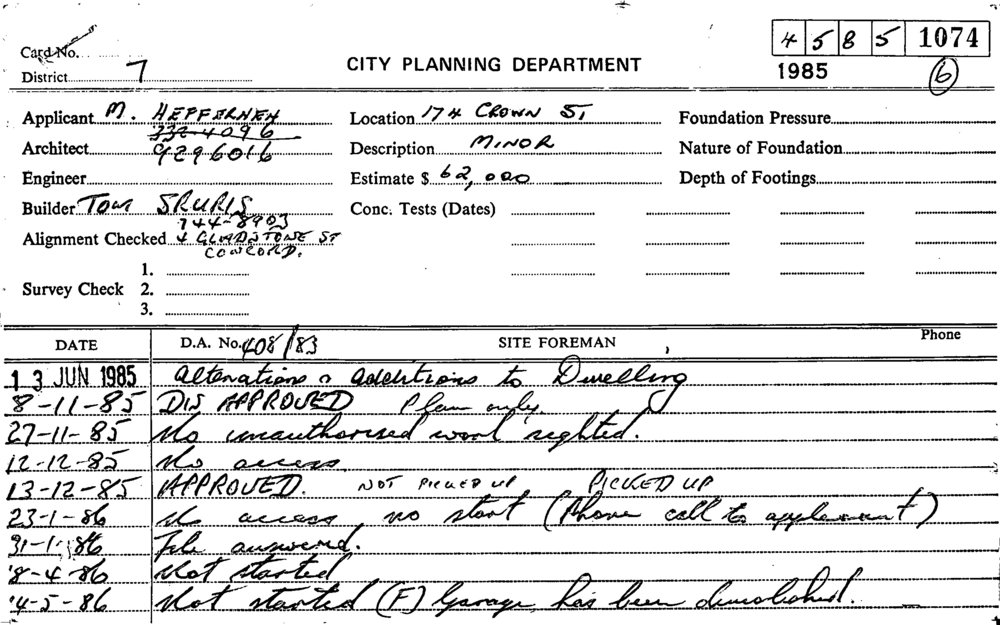 Card No.
4 5 8 5 1074
District 7
CITY PLANNING DEPARTMENT
1985
6
Applicant M. HEPFERNEH
Location 174 CROWN ST
Foundation Pressure
332-4096
Architect 9296016
Description MINOR
Nature of Foundation
Engineer
Estimate $ 62,000
Depth of Footings
Builder TOM SRURIS
Conc. Tests (Dates)
744-8903
Alignment Checked 4 GLADSTONE ST
CONCORD.
1.
Survey Check 2.
3.
DATE D.A. No. 408/83 SITE FOREMAN Phone
13 JUN 1985 Alterations & additions to Dwelling
8-11-85 DIS APPROVED Plan only
27-11-85 No unauthorised work sighted.
12-12-85 No access
13-12-85 APPROVED. NOT PICKED UP PICKED UP
23-1-86 No access, no start (Phone call to applicant)
31-1-86 File answered.
8-4-86 Not started
4-5-86 Not started (F) Garage has been demolished.